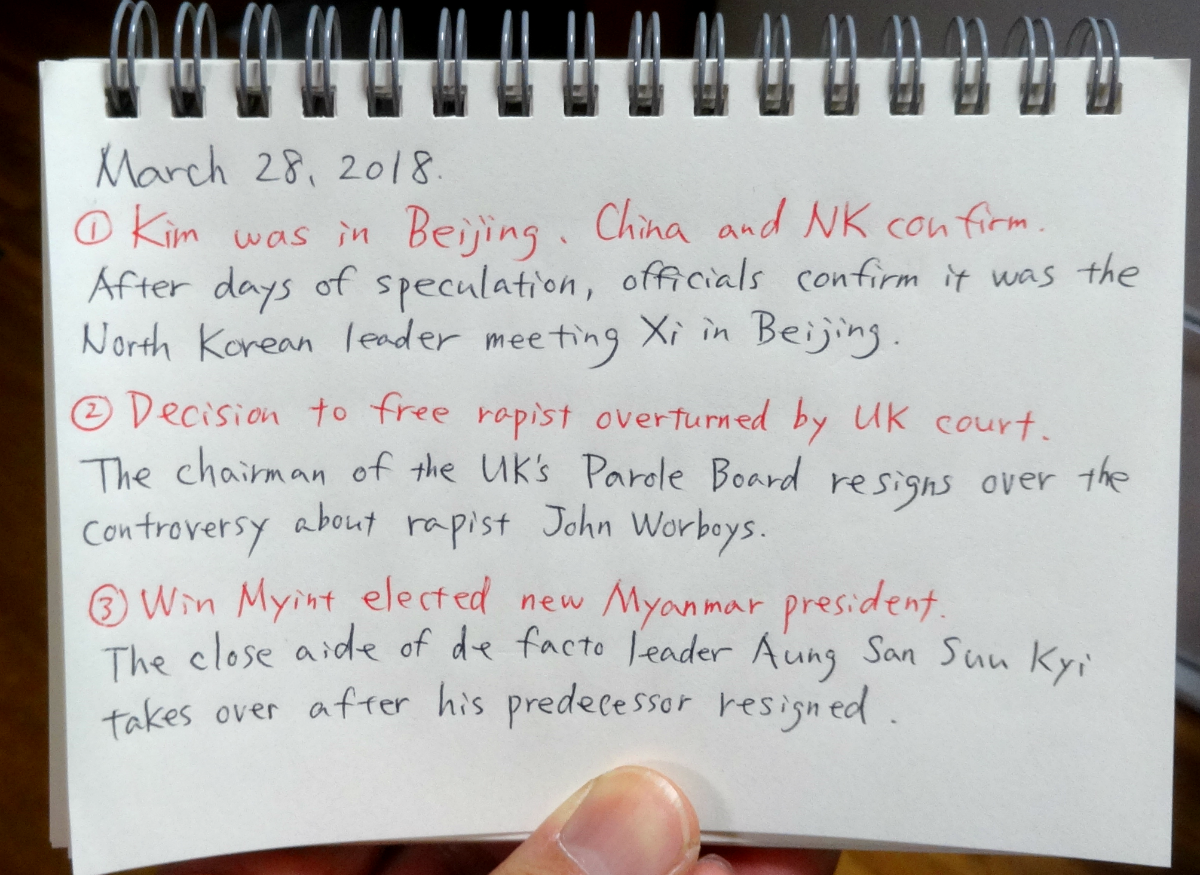 March 28, 2018.
① Kim was in Beijing. China and NK confirm.
After days of speculation, officials confirm it was the
North Korean leader meeting Xi in Beijing.
② Decision to free rapist overturned by UK court.
The chairman of the UK's Parole Board resigns over the
controversy about rapist John Worboys.
③ Win Myint elected new Myanmar president.
The close aide of de facto leader Aung San Suu Kyi
takes over after his predecessor resigned.